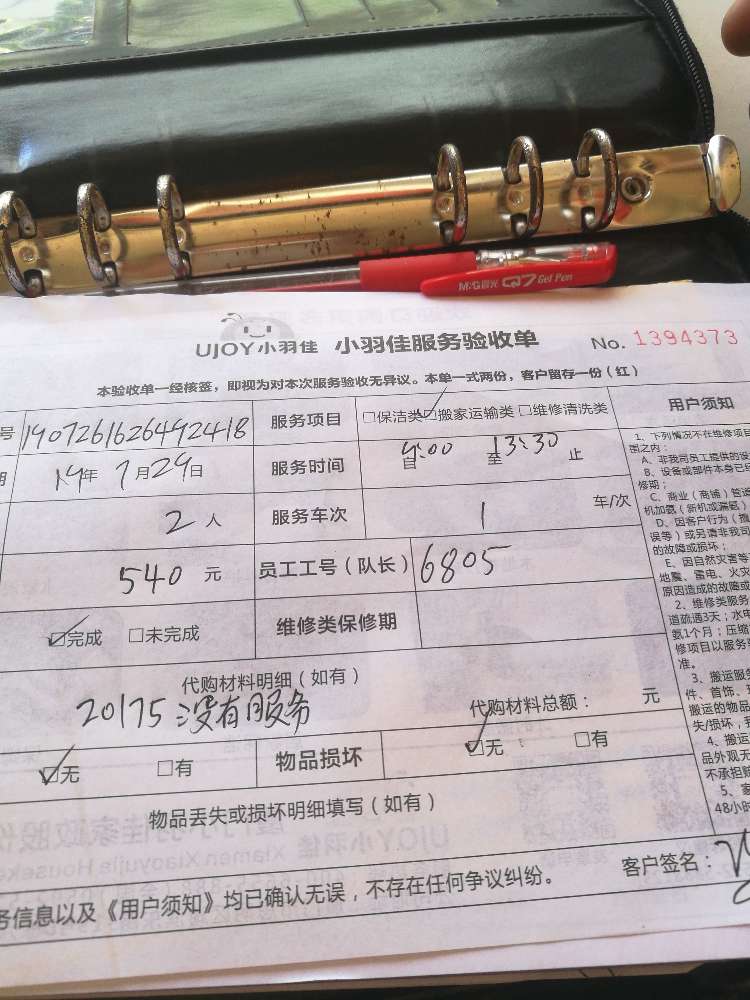 M&G晨光 Q7 Gel Pen
UJOY小羽佳 小羽佳服务验收单 No. 1394373
本验收单一经核签，即视为对本次服务验收无异议。本单一式两份，客户留存一份（红）
号 1907261626492418 服务项目 □保洁类☑搬家运输类□维修清洗类 用户须知
期 19年7月29日 服务时间 自 9:00 至 13:30 止
2人 服务车次 1 车/次
540元 员工工号（队长） 6805
☑完成 □未完成 维修类保修期
代购材料明细（如有）
20175 没有服务 代购材料总额： 元
☑无 □有 物品损坏 ☑无 □有
物品丢失或损坏明细填写（如有）
务信息以及《用户须知》均已确认无误，不存在任何争议纠纷。 客户签名：
1、下列情况不在维修项目
围之内：
A、非我司员工提供的设
B、设备或部件本身已经
修期；
C、商业（商铺）管道
机加氨（新机或漏氨）
D、因客户行为（擅
误等）或另请非我司
的故障或损坏；
E、因自然灾害等
地震、雷电、火灾
原因造成的故障或
2、维修类服务
道疏通3天；水电
氨1个月；压缩
修项目以服务
准。
3、搬运服务
件、首饰、
搬运的物品
失/损坏，
4、搬运
品外观无
不承担赔
5、家
48小时